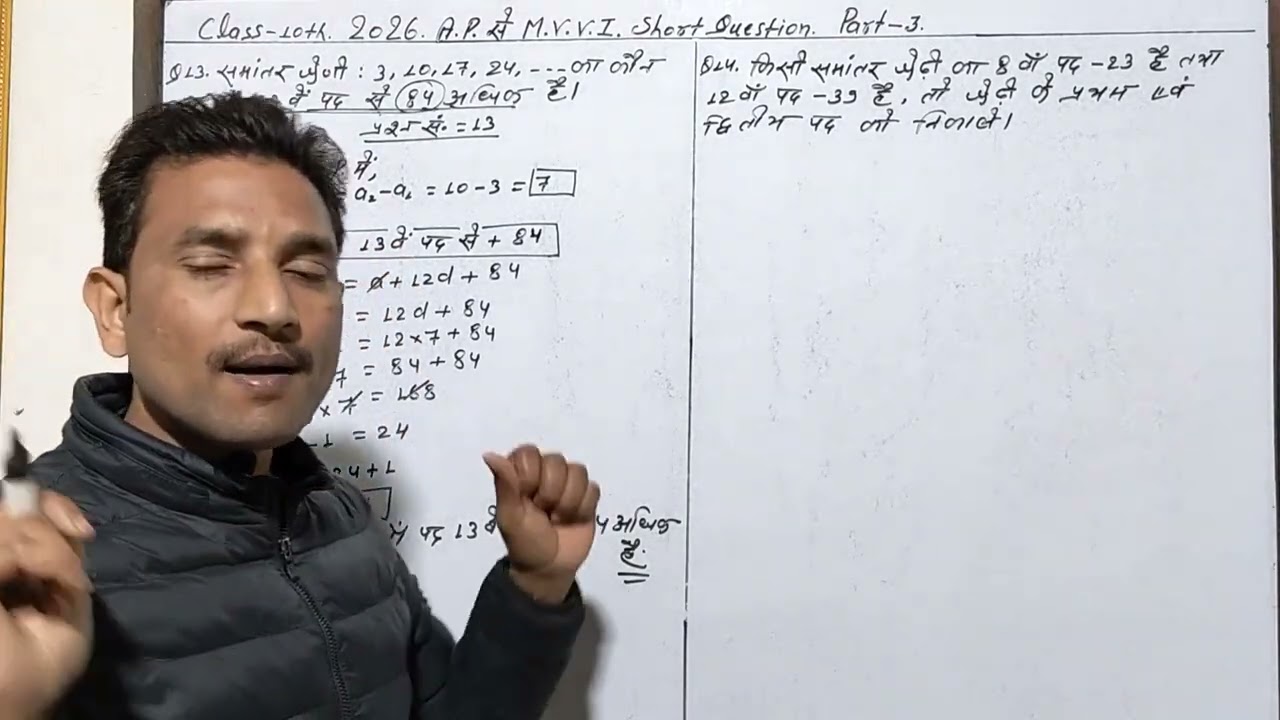 Class-10th. 2026. A.P. से M.V.V.I. Short Question. Part-3.
Q13. समांतर श्रेणी : 3, 10, 17, 24, ---- का कौन
वें पद से 84 अधिक है।
प्रश्न सं. = 13
में,
a₂-a₁ = 10-3 = 7
13वें पद से + 84
= a + 12d + 84
= 12d + 84
= 12×7 + 84
7 = 84 + 84
× 7 = 168
-1 = 24
24+1
पद 13वें 4 अधिक
है.
Q14. किसी समांतर श्रेढ़ी का 8 वाँ पद -23 है तथा
12वाँ पद -39 है, तो श्रेढ़ी के प्रथम एवं
द्वितीय पद को निकालें।